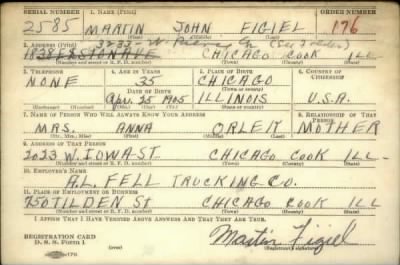 SERIAL NUMBER 1. NAME (Print) ORDER NUMBER
2585 MARTIN JOHN FIGIEL 176
3233 - W.
2. ADDRESS (Print)
CHICAGO COOK ILL
(Number and street or R. F. D. number) (Town) (County) (State)
3. TELEPHONE 4. AGE IN YEARS 5. PLACE OF BIRTH 6. COUNTRY OF CITIZENSHIP
NONE 35 CHICAGO
DATE OF BIRTH
Apr. 25 1905 ILLINOIS U.S.A.
(Exchange) (Number) (Mo.) (Day) (Yr.) (State or country)
7. NAME OF PERSON WHO WILL ALWAYS KNOW YOUR ADDRESS 8. RELATIONSHIP OF THAT PERSON
MRS. ANNA ORLEIK MOTHER
(Mr., Mrs., Miss) (First) (Middle) (Last)
9. ADDRESS OF THAT PERSON
2023 W. IOWA ST. CHICAGO COOK ILL-
(Number and street or R. F. D. number) (Town) (County) (State)
10. EMPLOYER'S NAME
A.L. FELL TRUCKING CO.
11. PLACE OF EMPLOYMENT OR BUSINESS
750 TILDEN St CHICAGO COOK ILL
(Number and street or R. F. D. number) (Town) (County) (State)
I AFFIRM THAT I HAVE VERIFIED ABOVE ANSWERS AND THAT THEY ARE TRUE.
REGISTRATION CARD
D. S. S. Form 1 (over) Martin Figiel
(Registrant's signature)